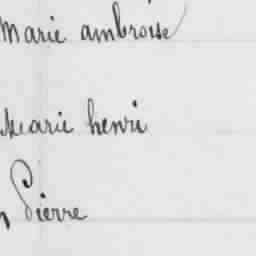 Marie ambroise
Marie henri
Pierre